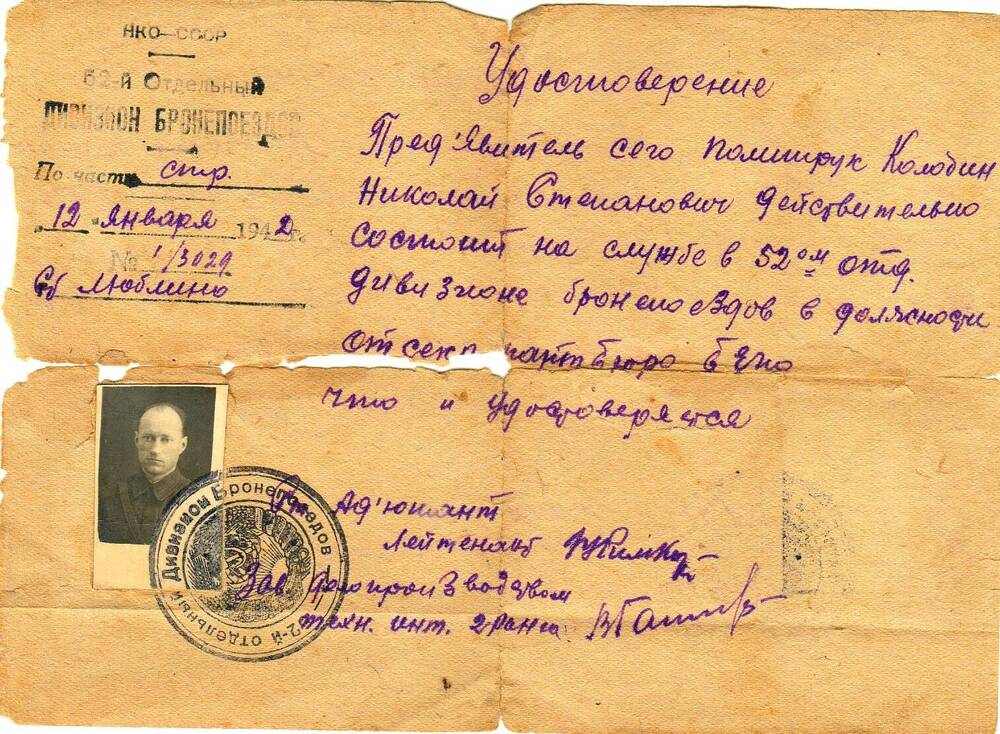 НКО—СССР
52-й Отдельный
ДИВИЗИОН БРОНЕПОЕЗДОВ
По части стр.
12 Января 1942 г.
№ 1/3029
Люблино
Удостоверение
Пред'явитель сего политрук Колобин
Николай Степанович действительно
состоит на службе в 52ом отд.
дивизионе бронепоездов в должности
отсекр партбюро
что и удостоверяется
Ад'ютант
Лейтенант
Зав. делопроизводством
техн. инт. 2 ранга
52-й отдельный Дивизион Бронепоездов